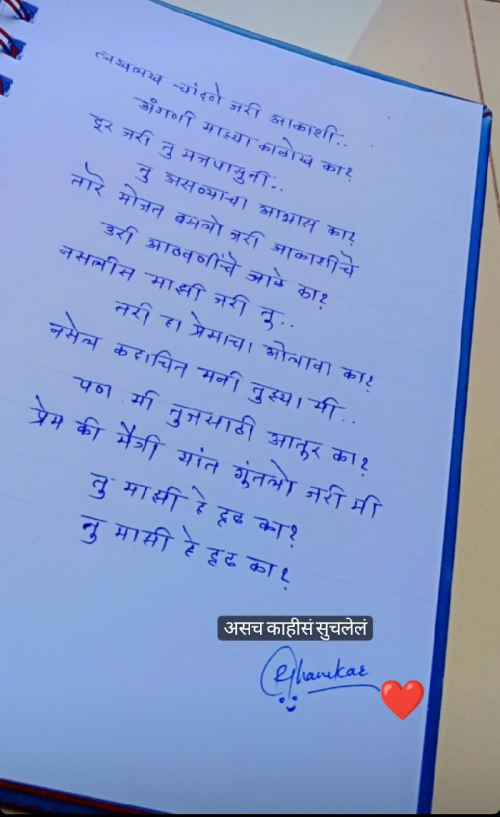 लखलख चांदणे जरी आकाशी..
अंगणी माझ्या काळोख का?
दूर जरी तु मजपासुनी..
तु असल्याचा आभास का?
तारे मोजत बसलो जरी आकाशीचे
उरी आठवणींचे जाळे का?
नसलीस माझी जरी तु..
तरी हा प्रेमाचा ओलावा का?
नसेल कदाचित मनी तुझ्या मी..
पण मी तुजसाठी आतूर का?
प्रेम की मैत्री यांत गुंतलो जरी मी
तु माझी हे दृढ का?
तु माझी हे दृढ का?
असच काहीसं सुचलेलं